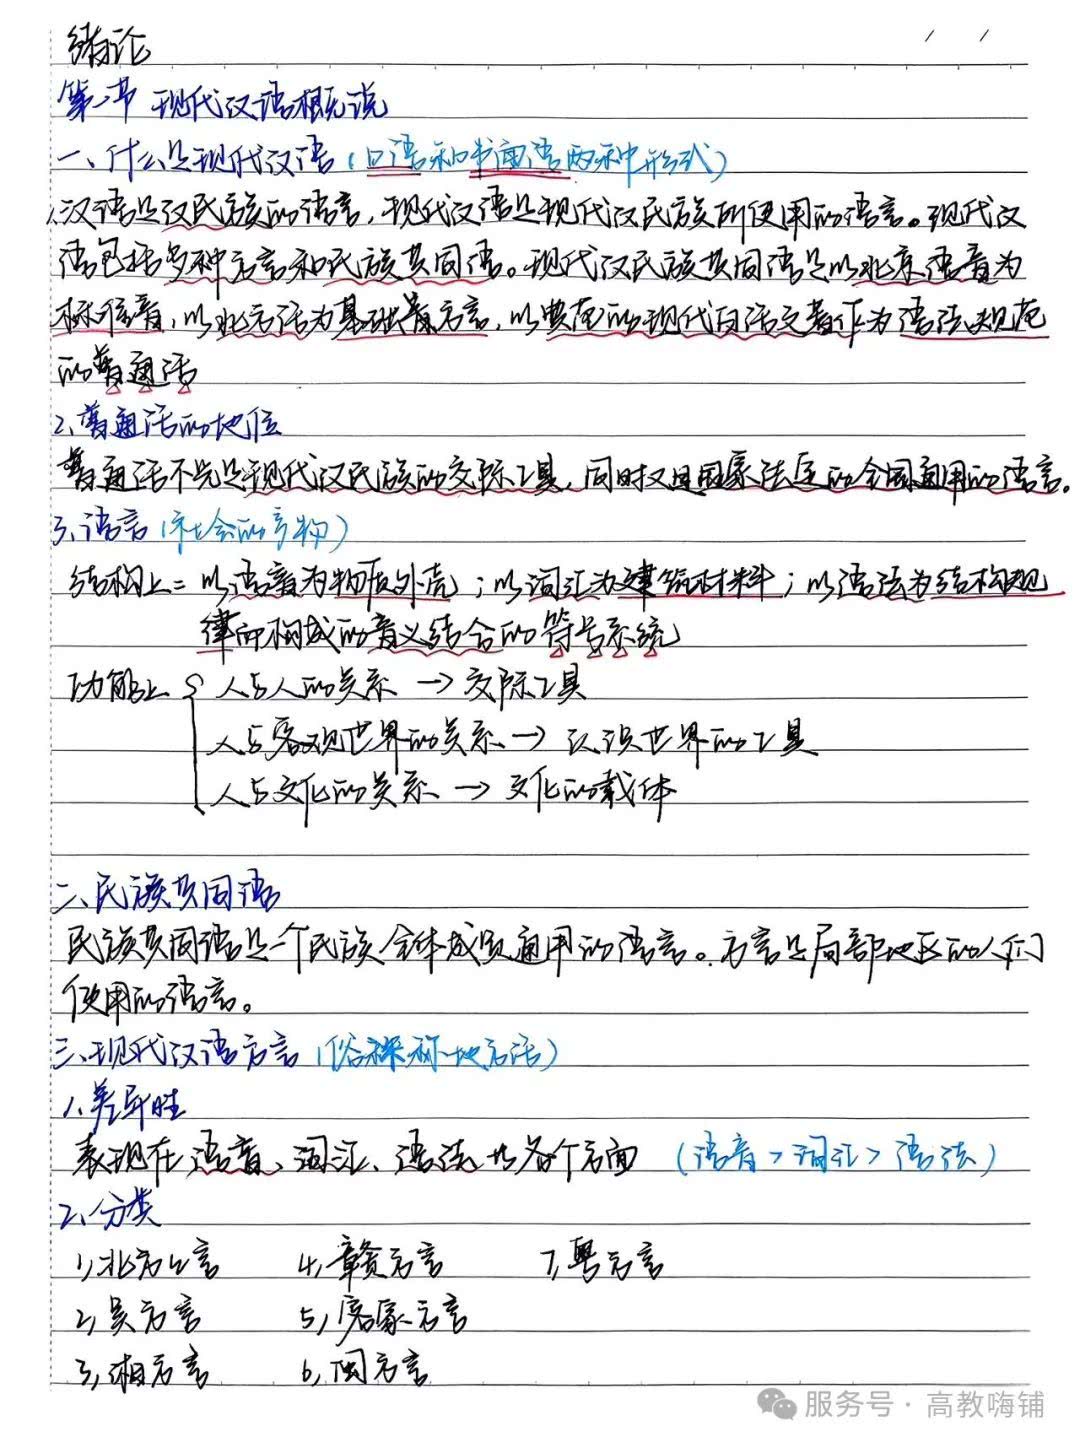 绪论
第一节 现代汉语概说
一、什么是现代汉语（口语和书面语两种形式）
1.汉语是汉民族的语言，现代汉语是现代汉民族所使用的语言。现代汉
语包括多种方言和民族共同语。现代汉民族共同语是以北京语音为
标准音，以北方话为基础方言，以典范的现代白话文著作为语法规范
的普通话
2、普通话的地位
普通话不光是现代汉民族的交际工具，同时又是国家法定的全国通用的语言。
3、语言（社会的产物）
结构上：以语音为物质外壳；以词汇为建筑材料；以语法为结构规
律而构成的音义结合的符号系统
功能上 人与人的关系 → 交际工具
人与客观世界的关系 → 认识世界的工具
人与文化的关系 → 文化的载体
二、民族共同语
民族共同语是一个民族全体成员通用的语言。方言是局部地区的人们
使用的语言。
三、现代汉语方言（俗称地方话）
1、差异性
表现在语音、词汇、语法各个方面（语音＞词汇＞语法）
2、分类
1，北方方言 4，赣方言 7，粤方言
2，吴方言 5，客家方言
3，湘方言 6，闽方言
服务号·高教嗨铺